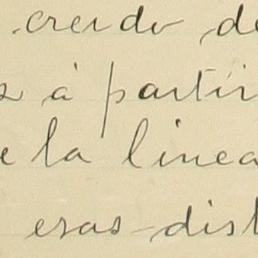 creido de
s á partir
e la linea
esas dist